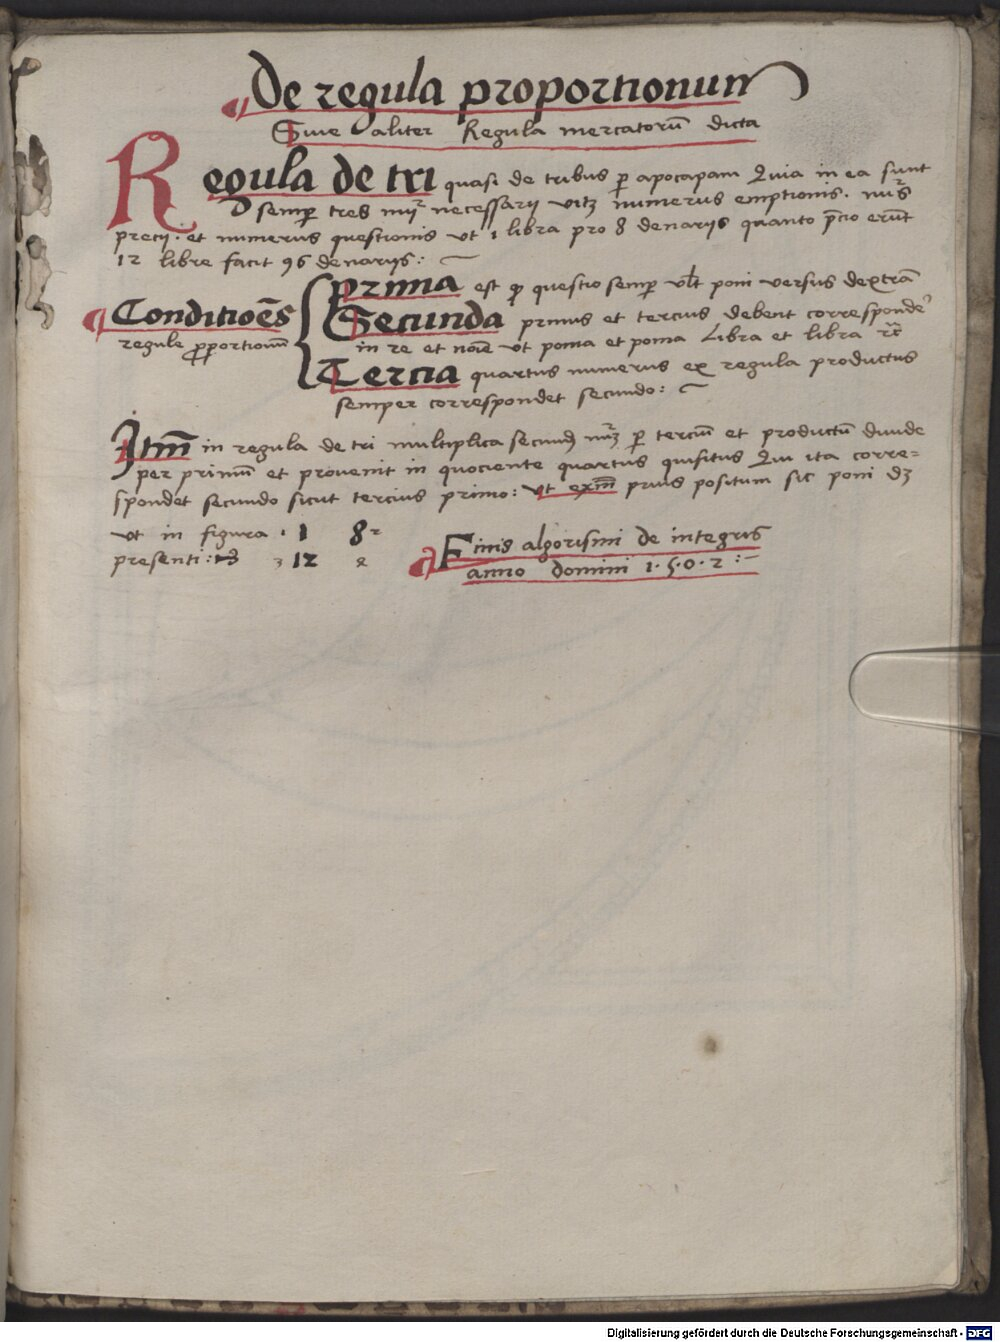 De regula proportionum
Siue aliter Regula mercatorū dicta
Regula de tri quasi de tribus p̱ apocapam Quia in ea sunt
semp̱ tres necessarij numerus emptionis.
precij. et numerus questionis vt 1 libra pro 8 denarijs quanto p̄cio erūt
12 libre facit 96 denarijs:
Prima est questio semp̱ poni versus dextrā
Conditioēs
Secunda primus et tercius debent correspondē
regule proportionū
in re et noīe vt poma et poma Libra et libra
Tercia quartus numerus ex regula productus
semper correspondet secundo:
Itm̄ in regula de tri multiplica p̱ terciū et productū diuide
per primū et prouenit in quociente quartus quisitus Qui ita corre=
spondet secundo sicut tercius primo: vt exm̄ prius positum sic poni
vt in figura . 1 8
presenti: 12
Finis algorismi de integris
anno domini 1.5.0.2 :-
Digitalisierung gefördert durch die Deutsche Forschungsgemeinschaft - DFG